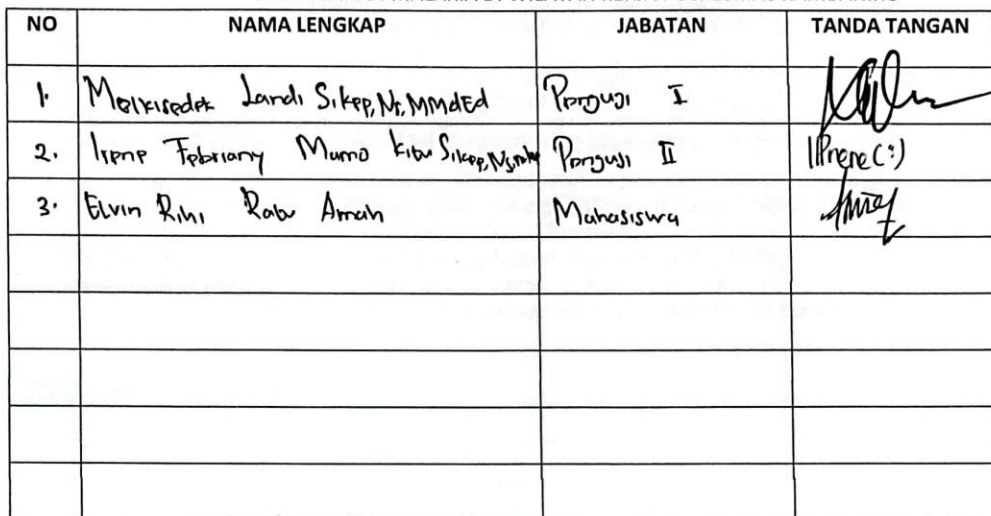 NO NAMA LENGKAP JABATAN TANDA TANGAN
1. Melkisedek Landi S.Kep,Ns,MMdEd Penguji I
2. Irene Febriany Mumo Kitu S.Kep,Ns Penguji II
3. Elvin Rihi Rabu Amah Mahasiswa